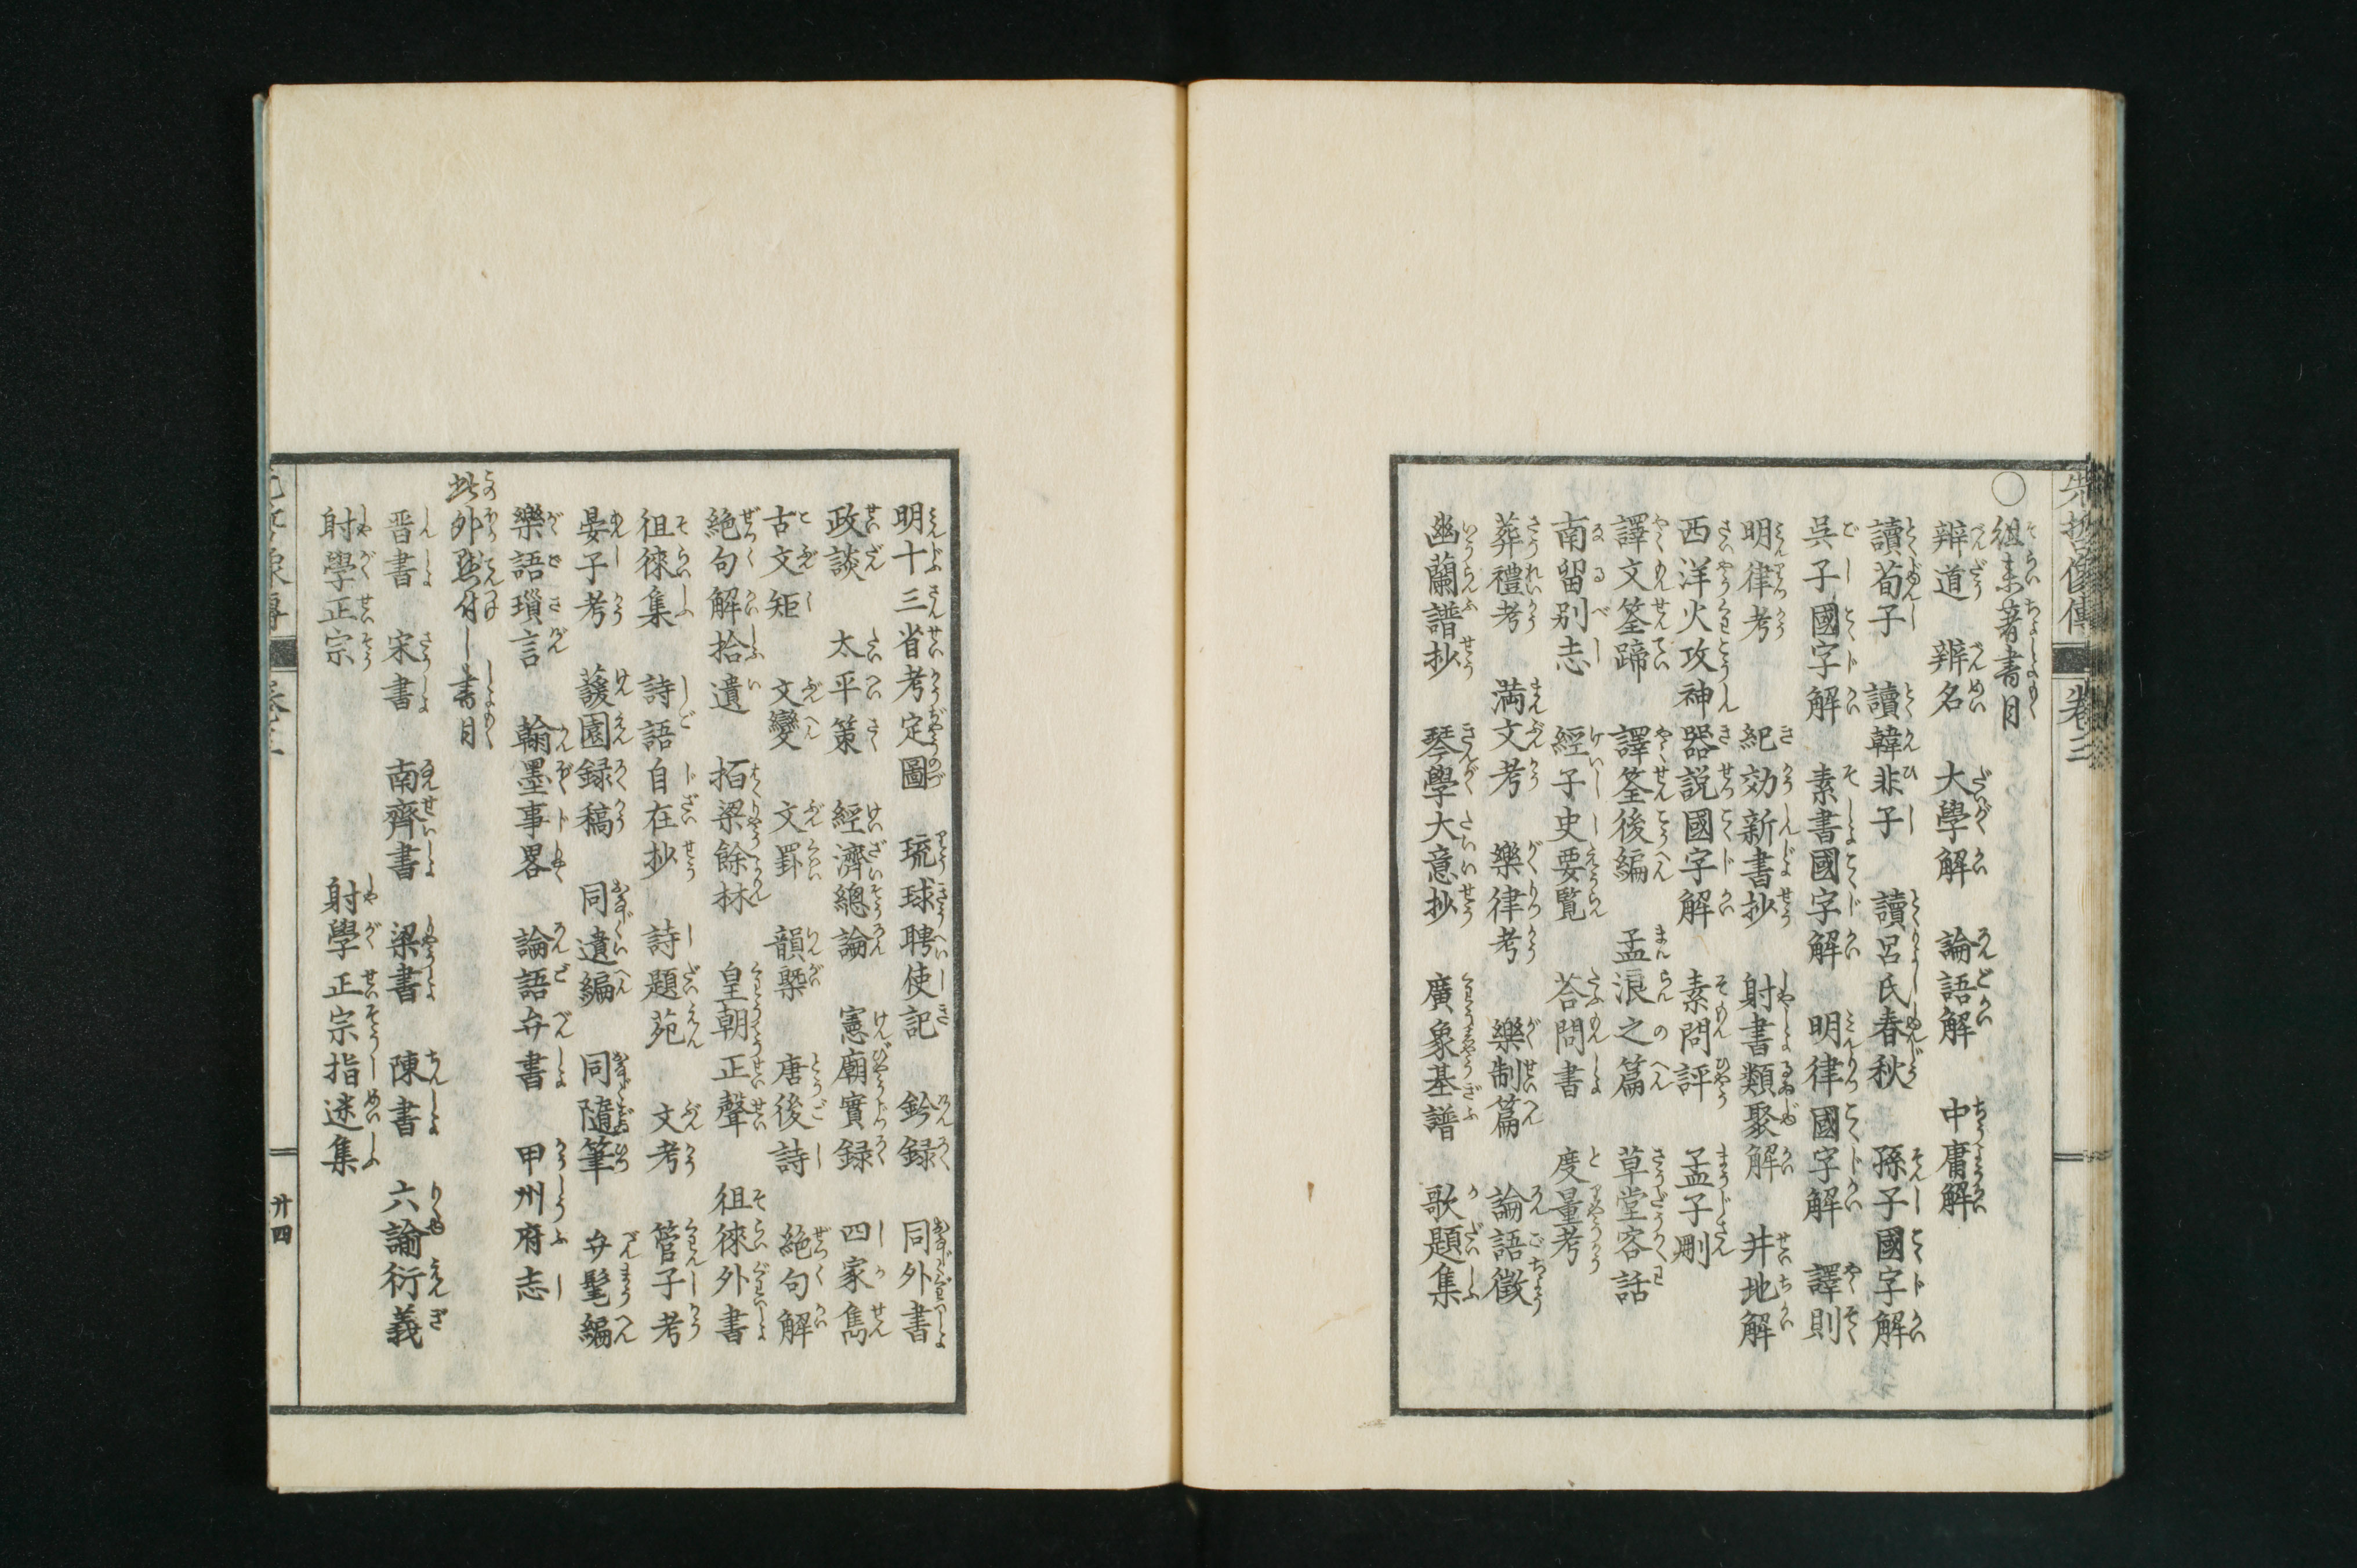 先哲像傳 卷三
○徂徠著書目
辨道 辨名 大學解 論語解 中庸解
讀荀子 讀韓非子 讀呂氏春秋 孫子國字解
呉子國字解 素書國字解 明律國字解 譯則
明律考 紀効新書抄 射書類聚解 井地解
西洋火攻神器説國字解 素問評 孟子刪
譯文筌蹄 譯筌後編 孟浪之篇 草堂客話
南留別志 經子史要覧 荅問書 度量考
葬禮考 満文考 樂律考 樂制篇 論語徴
幽蘭譜抄 琴學大意抄 廣象棊譜 歌題集
明十三省考定圖 琉球聘使記 鈐録 同外書
政談 太平策 經濟總論 憲廟實録 四家雋
古文矩 文變 文罫 韻槩 唐後詩 絶句解
絶句解拾遺 栢梁餘材 皇朝正聲 徂徠外書
徂徠集 詩語自在抄 詩題苑 文考 管子考
晏子考 蘐園録稿 同遺編 同隨筆 弁髦編
樂語瑣言 翰墨事畧 論語弁書 甲州府志
此外點付し書目
晋書 宋書 南齊書 梁書 陳書 六諭衍義
射學正宗 射學正宗指迷集
廿四